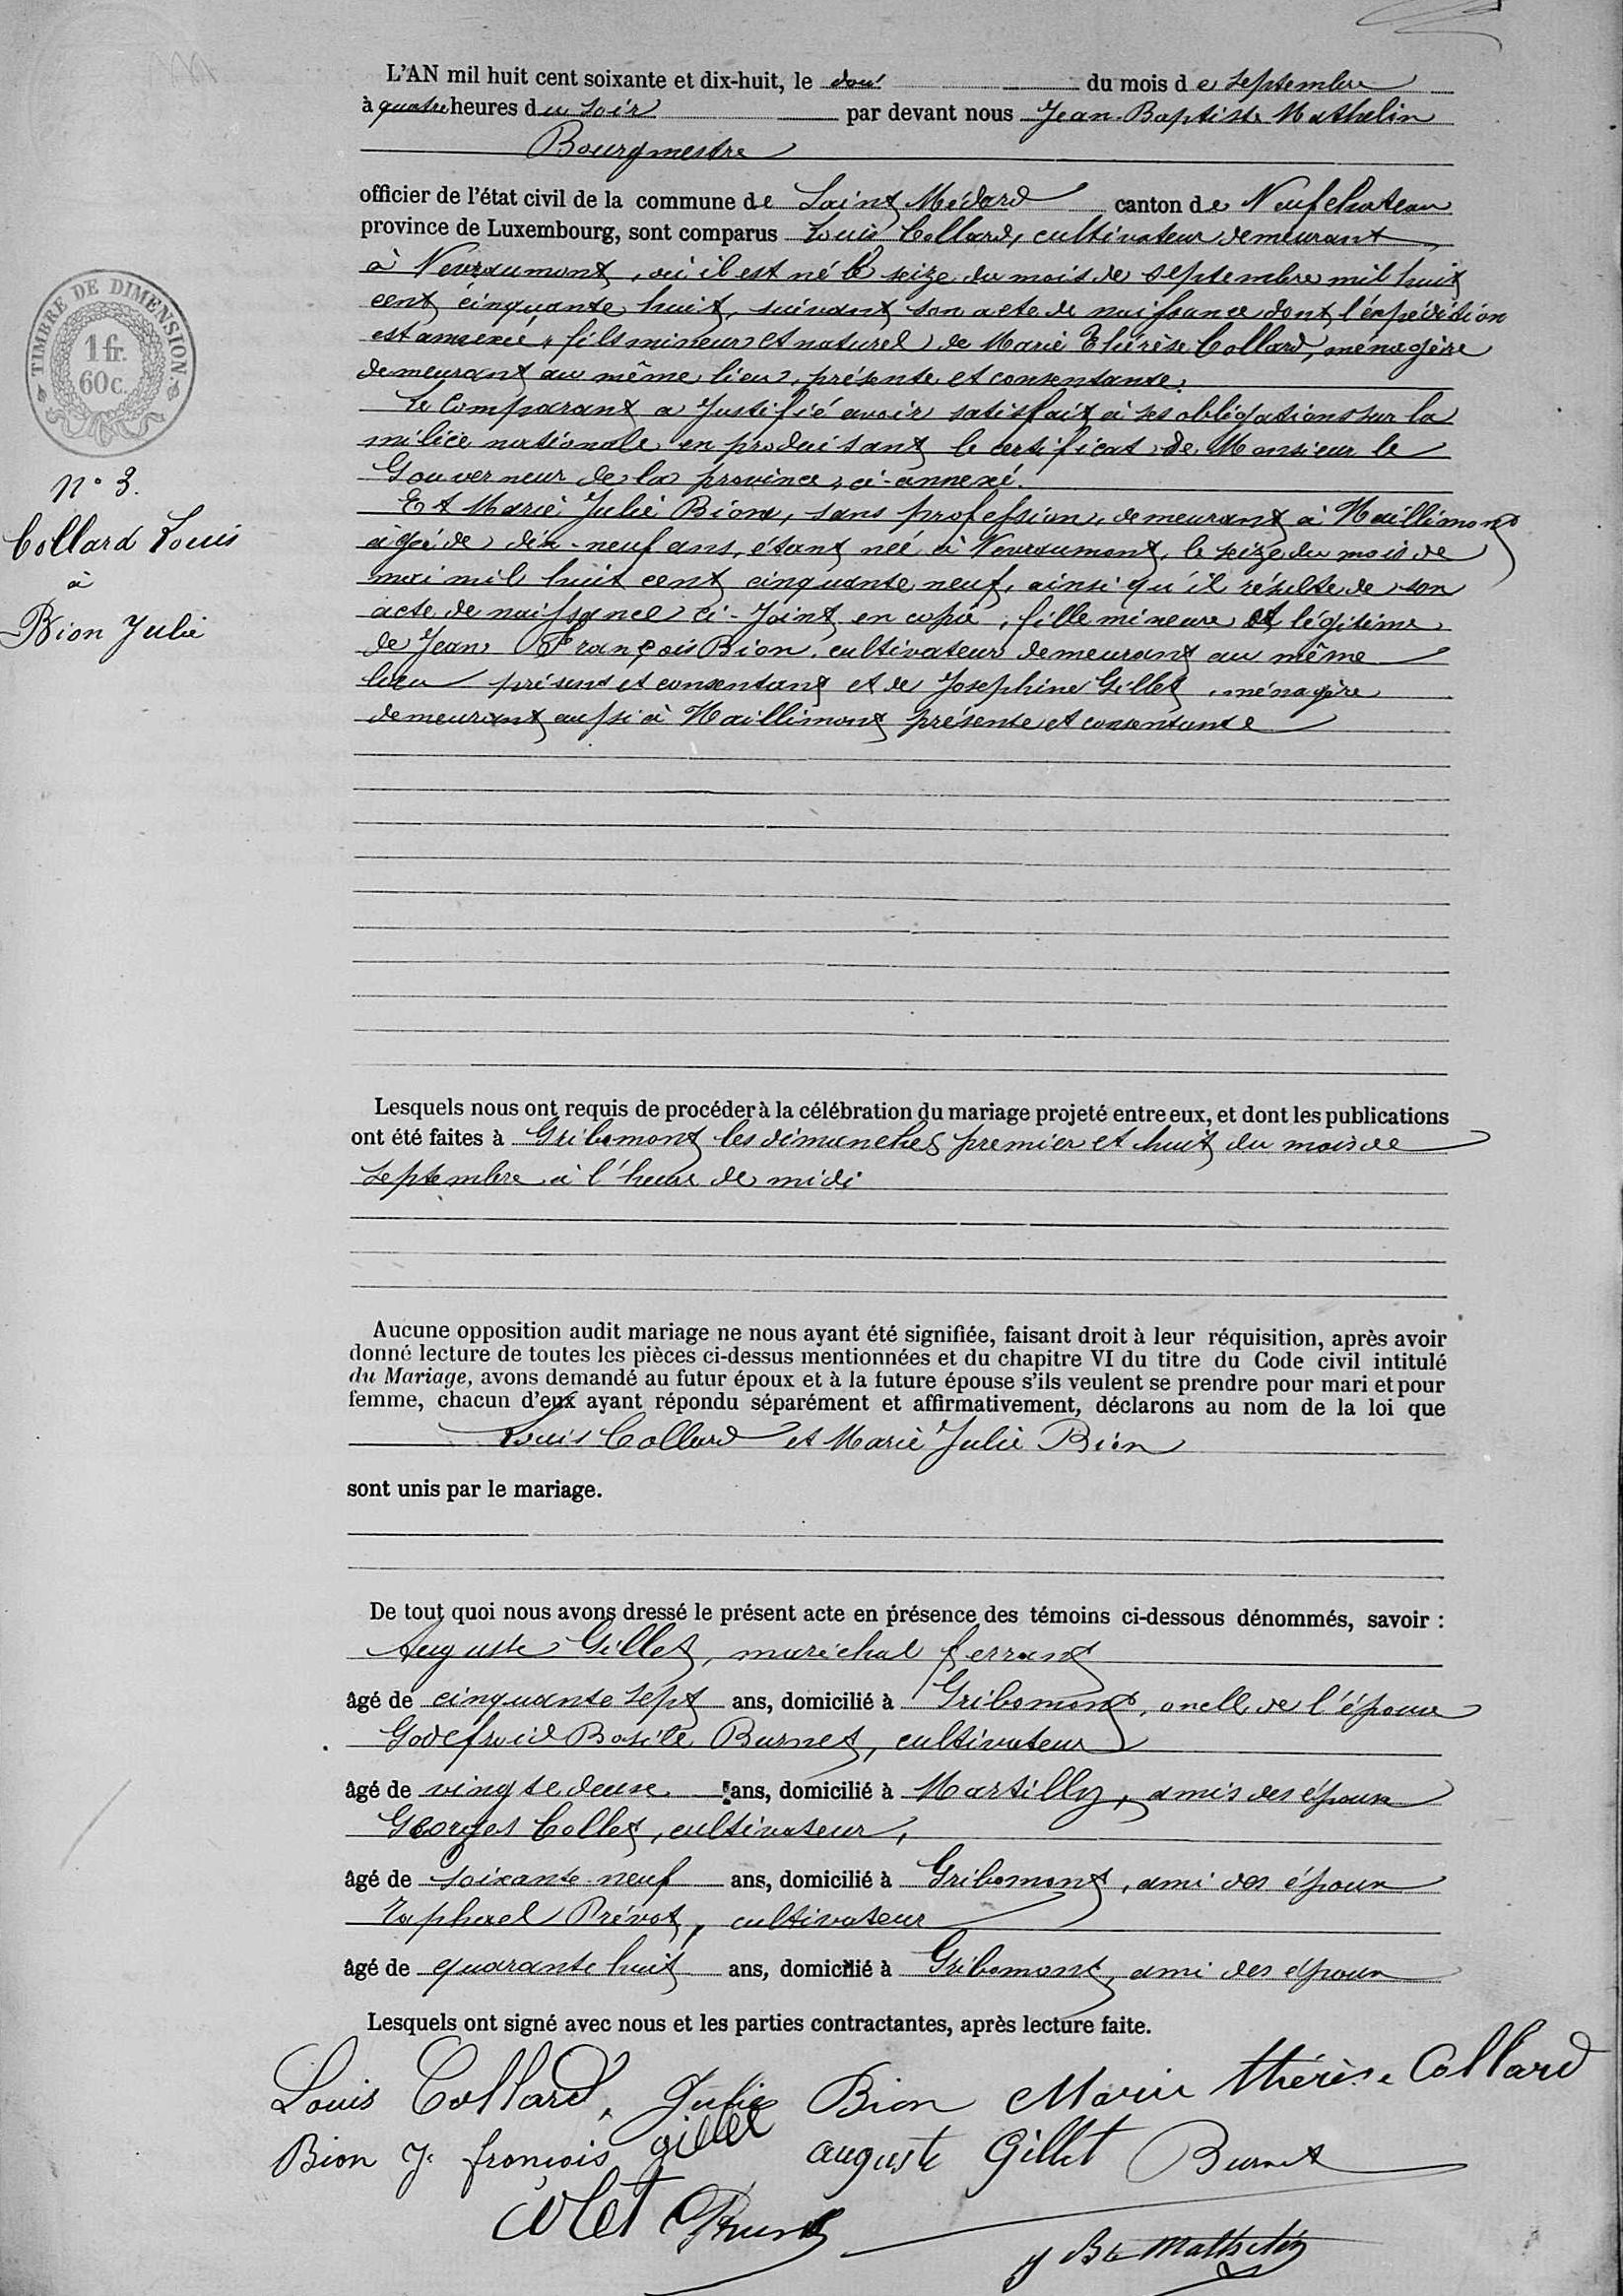 L'AN mil huit cent soixante et dix-huit, le douz du mois de septembre
à quatre heures du soir par devant nous Jean-Baptiste Mathelin
Bourgmestre
officier de l'état civil de la commune de Saint Médard canton de Neufchateau
province de Luxembourg, sont comparus Louis Collard, cultivateur demeurant
à Nevraumont, où il est né le seize du mois de septembre mil huit
cent cinquante huit, suivant son acte de naissance dont l'expédition
est annexée, fils mineur et naturel de Marie Thérèse Collard, ménagère
demeurant au même lieu, présente et consentante.
Le Comparant a justifié avoir satisfait à ses obligations sur la
milice nationale en produisant le certificat de Monsieur le
Gouverneur de la province, ci-annexé.
Et Marie Julie Bion, sans profession, demeurant à Naillimont
âgée de dix-neuf ans, étant née à Nevraumont, le seize du mois de
mai mil huit cent cinquante neuf, ainsi qu'il résulte de son
acte de naissance ci-joint en copie, fille mineure et légitime
de Jean François Bion, cultivateur demeurant au même
lieu présent et consentant et de Josephine Gillet, ménagère
demeurant aussi à Naillimont présente et consentante
TIMBRE DE DIMENSION
1 fr.
60c.
N° 3.
Collard Louis
à
Bion Julie
Lesquels nous ont requis de procéder à la célébration du mariage projeté entre eux, et dont les publications
ont été faites à Gribomont les dimanches premier et huit du mois de
septembre à l'heure de midi
Aucune opposition audit mariage ne nous ayant été signifiée, faisant droit à leur réquisition, après avoir
donné lecture de toutes les pièces ci-dessus mentionnées et du chapitre VI du titre du Code civil intitulé
du Mariage, avons demandé au futur époux et à la future épouse s'ils veulent se prendre pour mari et pour
femme, chacun d'eux ayant répondu séparément et affirmativement, déclarons au nom de la loi que
Louis Collard et Marie Julie Bion
sont unis par le mariage.
De tout quoi nous avons dressé le présent acte en présence des témoins ci-dessous dénommés, savoir :
Auguste Gillet, maréchal ferrant
âgé de cinquante sept ans, domicilié à Gribomont, oncle de l'épouse
Godefroid Basile Burnet, cultivateur
âgé de vingt deux ans, domicilié à Martilly, amis des époux
Georges Collet, cultivateur,
âgé de soixante-neuf ans, domicilié à Gribomont, ami des époux
Raphael Prévot, cultivateur
âgé de quarante huit ans, domicilié à Gribomont, ami des époux
Lesquels ont signé avec nous et les parties contractantes, après lecture faite.
Louis Collard, Julie Bion Marie thérèse Collard
Bion J. françois gillet auguste Gillet Burnet
Colet
J Bte Mathelin